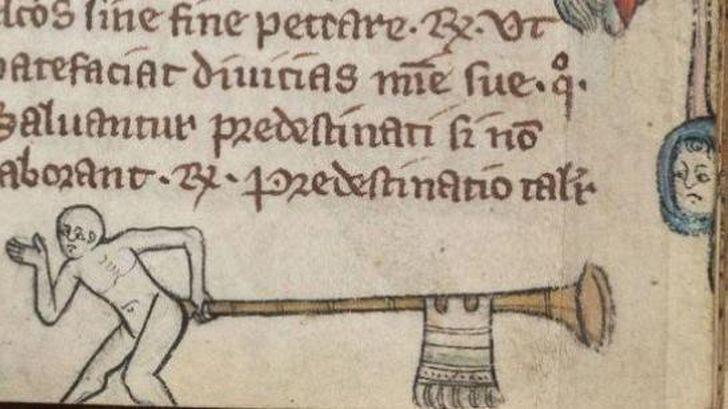 alios sine fine peccare. ℟. Ut
patefaciat divicias mīe sue. qͦ.
Saluantur predestinati si nō
laborant. ℟. Predestinatio talr̄